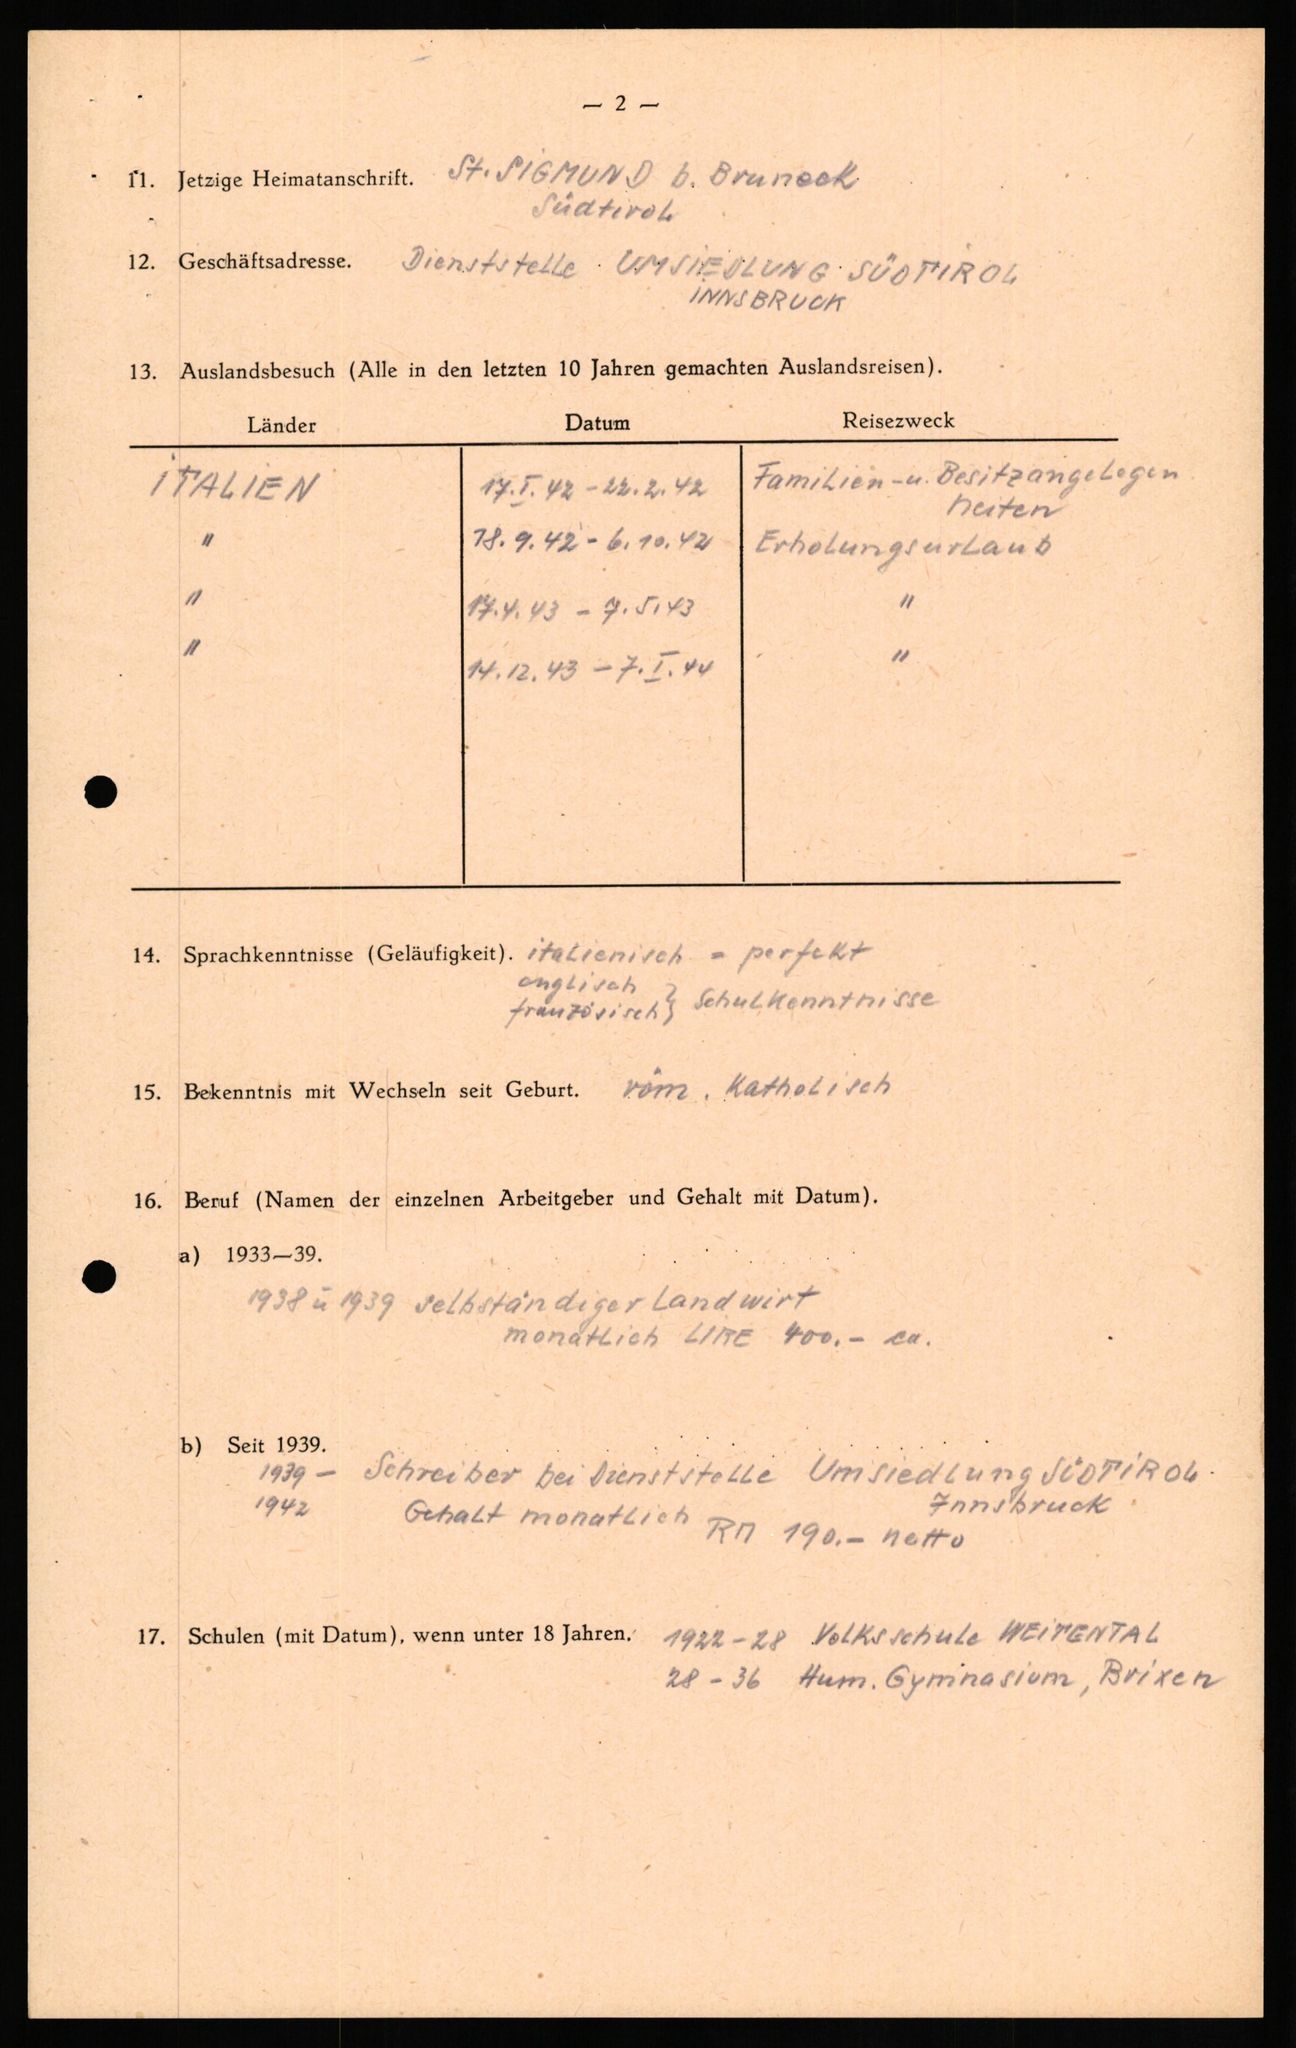 — 2 —
11. Jetzige Heimatanschrift. St. SIGMUND b. Bruneck
Südtirol
12. Geschäftsadresse. Dienststelle UMSIEDLUNG SÜDTIROL
INNSBRUCK
13. Auslandsbesuch (Alle in den letzten 10 Jahren gemachten Auslandsreisen).
Länder Datum Reisezweck
ITALIEN 17.I.42 - 22.2.42 Familien-u. Besitzangelegen
heiten
" 18.9.42 - 6.10.42 Erholungsurlaub
" 17.4.43 - 7.5.43 "
" 14.12.43 - 7.I.44 "
14. Sprachkenntnisse (Geläufigkeit). italienisch = perfekt
englisch
französisch } Schulkenntnisse
15. Bekenntnis mit Wechseln seit Geburt. röm. Katholisch
16. Beruf (Namen der einzelnen Arbeitgeber und Gehalt mit Datum).
a) 1933—39.
1938 u 1939 selbständiger Landwirt
monatlich LIRE 400.- ca.
b) Seit 1939.
1939 - Schreiber bei Dienststelle Umsiedlung SÜDTIROL
1942 Innsbruck
Gehalt monatlich RM 190.- netto
17. Schulen (mit Datum), wenn unter 18 Jahren. 1922-28 Volksschule WEITENTAL
28-36 Hum. Gymnasium, Brixen